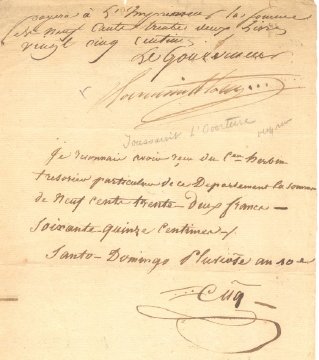 payera à l'Imprimeur la somme
de neuf cents trente deux livres
vingt cinq centimes
Le Gouverneur
Toussaint Louverture
Toussaint L'Ouverture
Je reconnais avoir reçu du Cen herbin
tresorier particulier de ce Departement la somme
de Neuf cents trente-deux francs
Soixante quinze Centimes
Santo-Domingo Pluviose an 10 e
Cuq